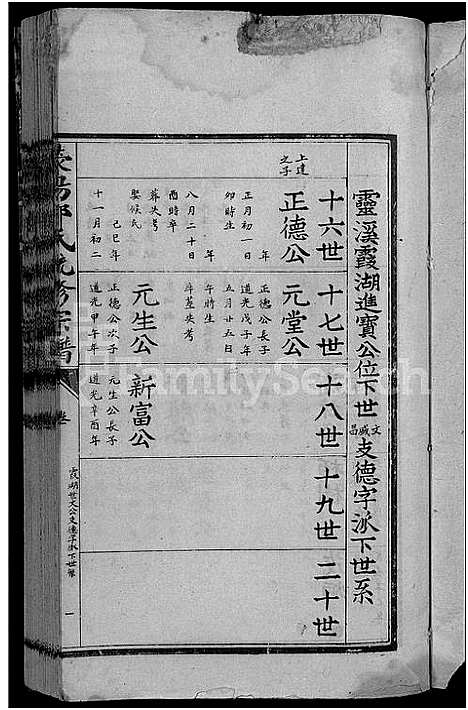 靈溪霞湖進寶公位下世文盛昌支德字派下世系
十六世
十七世
十八世
十九世
二十世
上達之子
正德公
正月初一日
年
卯時生
八月二十日
年
酉時卒
葬失考
娶侯氏
己巳年
十一月初二
元堂公
正德公長子
道光戊子年
五月廿五日
午時生
卒葬失考
元生公
正德公次子
道光甲午年
新富公
元生公長子
道光辛酉年
氏統修宗譜
卷
霞湖世文公支德字派下世系
一
FamilySearch